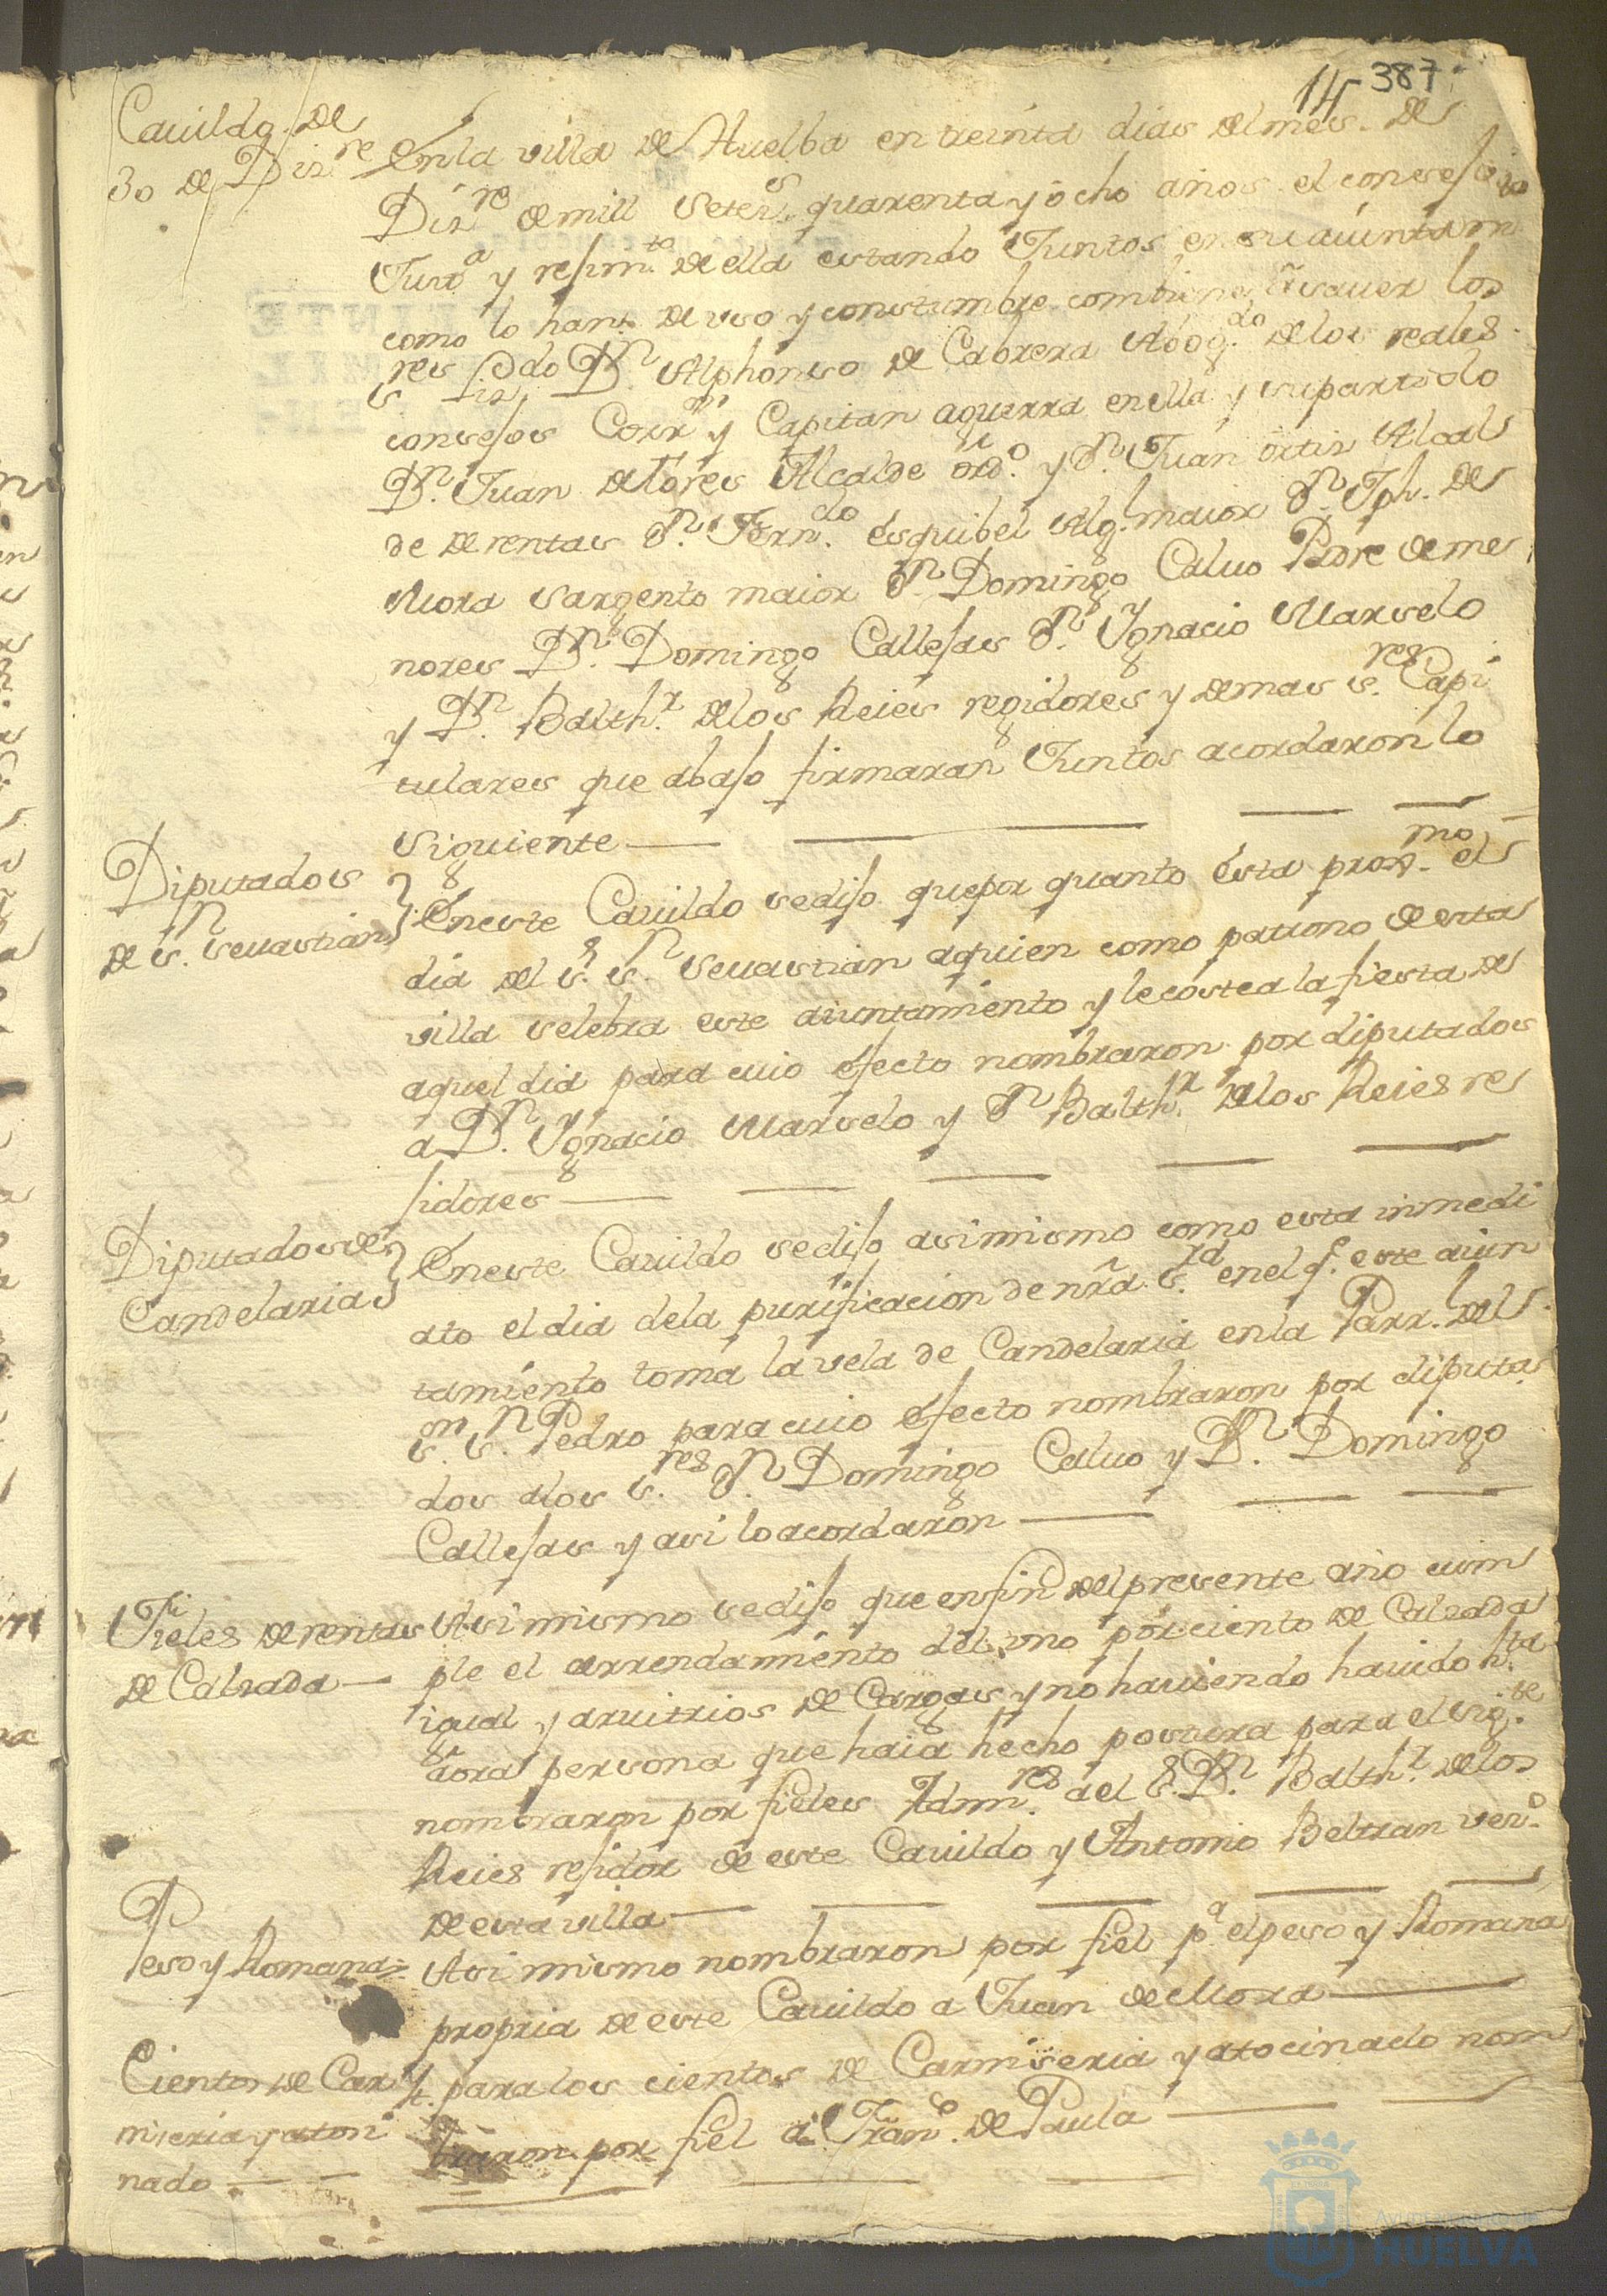 14 387
Cauildo de
30 de Diz.re
En la villa de Huelba en treinta dias del mes de
Diz.re de mill Setez.s quarenta y ocho años el consejo
Just.a y rejim.to de ella estando Juntos en su aiuntam
como lo han de uso y constumbre combiene a sauer los
s.res Liz.do D.n Alphonso de Cabrera Abog.do de los reales
consejos Corr.or y Capitan aguerra en ella y su partido
D.n Juan de tores Alcalde ord.o y D.n Juan ortiz Alcal
de de rentas D.n Fern.do esquibel Alg.l maior D.n Jph. de
Mora sargento maior D.n Domingo Caluo Padre de me
nores D.n Domingo Callejas D.n Ygnacio Marselo
y D.n Balth.r de los Reies regidores y demas s.res Capi
tulares que abajo firmaran Juntos acordaron lo
siguiente
Diputados
de S.n Seuastian
En este Cauildo se dijo que por quanto esta prox.mo el
dia del S.r S.n Seuastian a quien como patrono de esta
villa selebra este aiuntamiento y le costea la fiesta de
aquel dia para cuio efecto nombraron por diputados
a D.n Ygnacio Marselo y D.n Balth.r de los Reies re
jidores
Diputados de
Candelarias
En este Cauildo se dijo asimismo como esta inmedi
ato el dia de la purificacion de nra. S.ra en el q.e este aiun
tamiento toma la vela de Candelaria en la Parr.l del
S.or S.n Pedro para cuio efecto nombraron por diputa
dos a los S.res D.n Domingo Caluo y D.n Domingo
Callejas y asi lo acordaron
Fieles de rentas
de Calzada
Asi mismo se dijo que en fin del presente año cum
ple el arrendamiento del uno por ciento de Calzada
igual y aruitrios de Cargas y no hauiendo hauido h.ta
aora persona que haia hecho postura para el sig.te
nombraron por fieles Admin.res a el S. D.n Balth.r de los
Reies rejidor de este Cauildo y Antonio Beltran vez.o
de esta villa
Peso y Romana
Asi mismo nombraron por fiel p.a el peso y Romana
propria de este Cauildo a Juan de Mora
Cientos de Car
niseria y atosi
nado
Yt. para los cientos de Carniseria y atocinado nom
braron por fiel a Fran.co de Paula
Ayuntamiento de
HUELVA